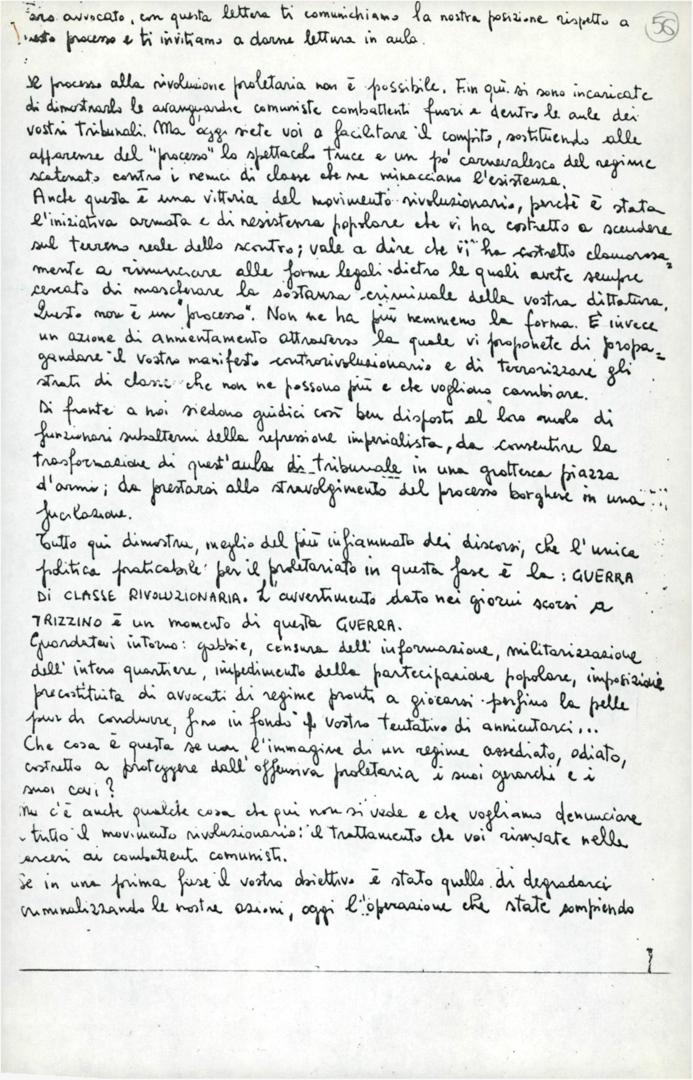 caro avvocato, con questa lettera ti comunichiamo la nostra posizione rispetto a
questo processo e ti invitiamo a darne lettura in aula.
56
Il processo alla rivoluzione proletaria non è possibile. Fin quì si sono incaricate
di dimostrarlo le avanguardie comuniste combattenti fuori e dentro le aule dei
vostri tribunali. Ma oggi siete voi a facilitare il compito, sostituendo alle
apparenze del "processo" lo spettacolo truce e un pò carnevalesco del regime
scatenato contro i nemici di classe che ne minacciano l'esistenza.
Anche questa è una vittoria del movimento rivoluzionario, perchè è stata
l'iniziativa armata e di resistenza popolare che vi ha costretto a scendere
sul terreno reale dello scontro; vale a dire che vi ha costretto clamorosa=
mente a rinunciare alle forme legali dietro le quali avete sempre
cercato di mascherare la sostanza criminale della vostra dittatura.
Questo non è un "processo". Non ne ha più nemmeno la forma. È invece
un azione di annientamento attraverso la quale vi proponete di propa=
gandare il vostro manifesto controrivoluzionario e di terrorizzare gli
strati di classe che non ne possono più e che vogliono cambiare.
Di fronte a noi siedono giudici così ben disposti al loro ruolo di
funzionari subalterni della repressione imperialista, da consentire la
trasformazione di quest'aula di tribunale in una grottesca piazza
d'armi; da prestarsi allo stravolgimento del processo borghese in una
fucilazione.
Tutto qui dimostra, meglio del più infiammato dei discorsi, che l'unica
politica praticabile per il proletariato in questa fase è la: GUERRA
DI CLASSE RIVOLUZIONARIA. L'avvertimento dato nei giorni scorsi a
TRIZZINO è un momento di questa GUERRA.
Guardatevi intorno: gabbie, censura dell'informazione, militarizzazione
dell'intero quartiere, impedimento della partecipazione popolare, imposizione
precostituita di avvocati di regime pronti a giocarsi perfino la pelle
pur di condurre, fino in fondo il vostro tentativo di annientarci...
Che cosa è questa se non l'immagine di un regime assediato, odiato,
costretto a proteggere dall'offensiva proletaria i suoi gerarchi e i
suoi covi?
Ma c'è anche qualche cosa che qui non si vede e che vogliamo denunciare
a tutto il movimento rivoluzionario: il trattamento che voi riservate nelle
carceri ai combattenti comunisti.
Se in una prima fase il vostro obiettivo è stato quello di degradarci
criminalizzando le nostre azioni, oggi l'operazione che state compiendo